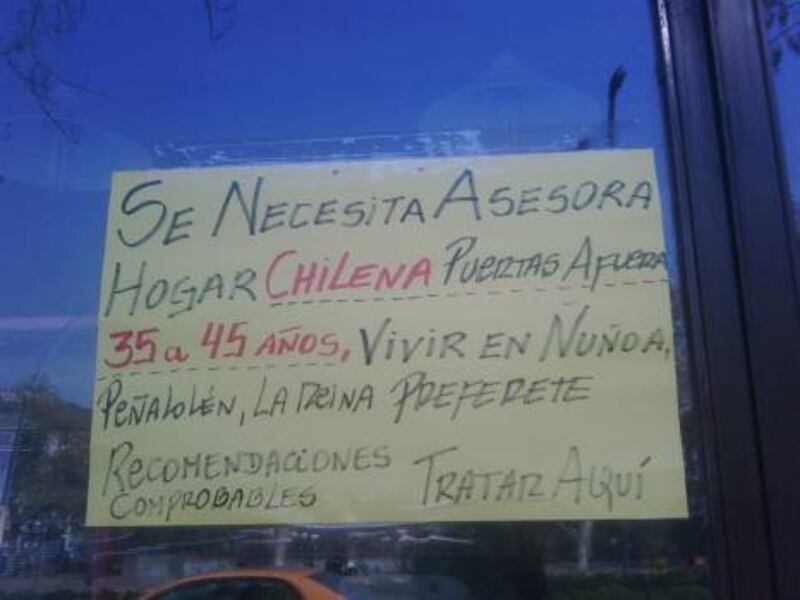 SE NECESITA ASESORA
HOGAR CHILENA PUERTAS AFUERA
35 a 45 AÑOS, VIVIR EN ÑUÑOA,
PEÑALOLÉN, LA REINA PREFERETE
RECOMENDACIONES
COMPROBABLES
TRATAR AQUÍ